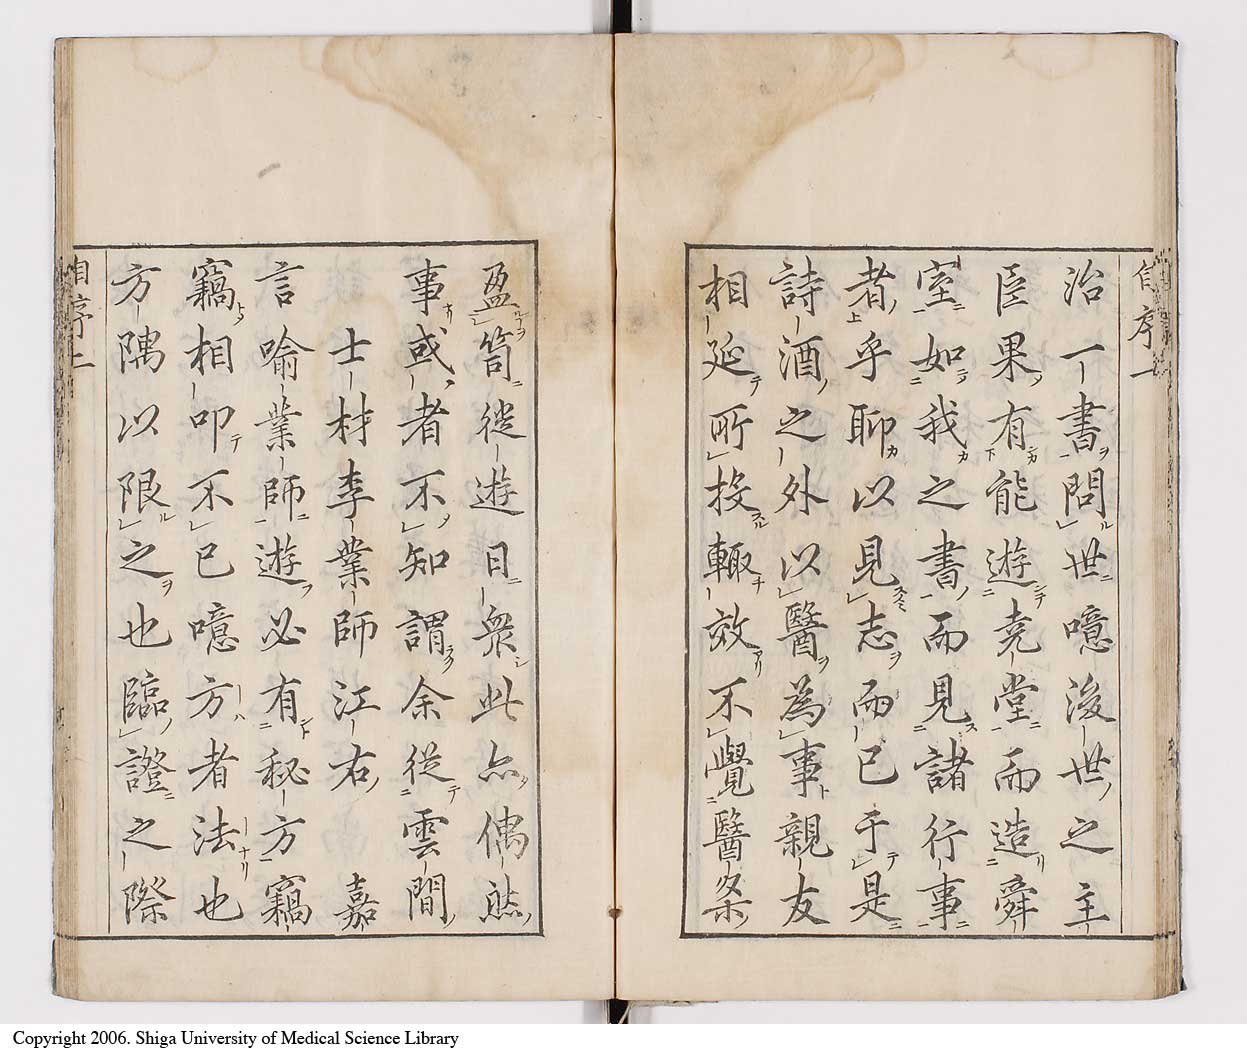 自序一
治一書問世噫後世之主
臣果有能遊堯堂而造舜
室如我之書而見諸行事
者乎聊以見志而已于是
詩酒之外以醫為事親友
相延所投輙效不覺醫案
盈笥從遊日衆此亦偶然
事或者不知謂余從雲間
士材李業師江右嘉
言喻業師遊必有秘方竊
竊相叩不已噫方者法也
方隅以限之也臨證之際
自序二
Copyright 2006. Shiga University of Medical Science Library